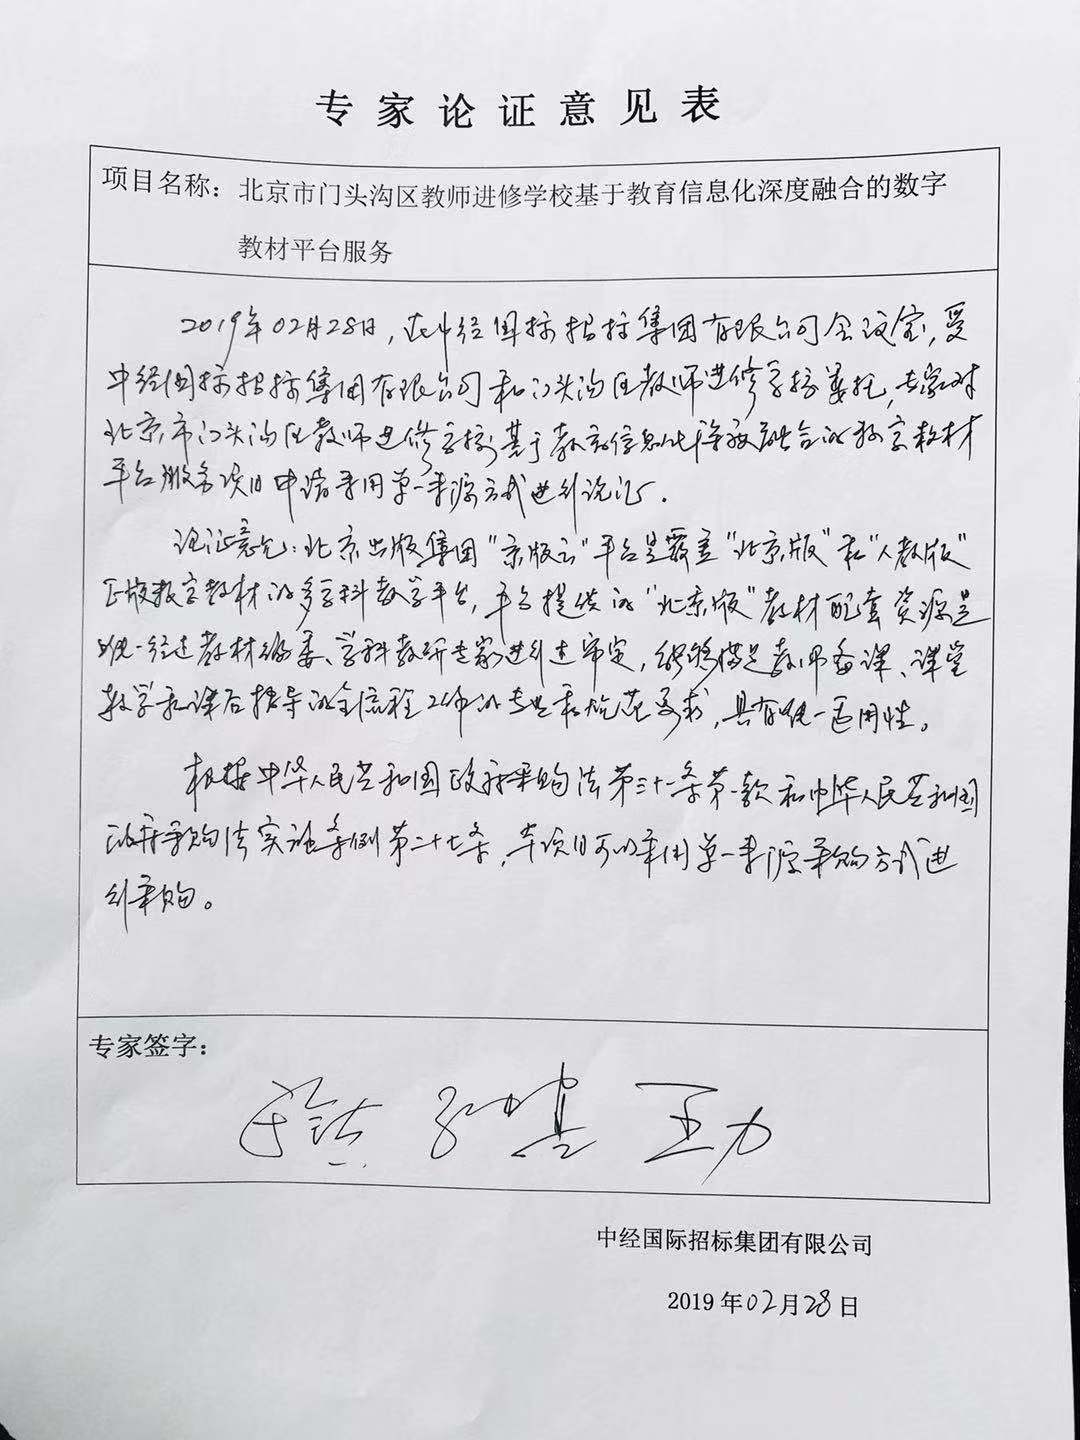 专家论证意见表
项目名称：北京市门头沟区教师进修学校基于教育信息化深度融合的数字
教材平台服务
2019年02月28日，在中经国际招标集团有限公司会议室，受
中经国际招标集团有限公司和门头沟区教师进修学校委托，专家对
北京市门头沟区教师进修学校基于教育信息化深度融合的数字教材
平台服务项目申请采用单一来源方式进行论证。
论证意见：北京出版集团“京版云”平台是覆盖“北京版”和“人教版”
正版数字教材的多学科教学平台，平台提供的“北京版”教材配套资源是
唯一经过教材编委、学科教研专家进行过审定，能够满足教师备课、课堂
教学和课后指导的全流程工作的专业和规范要求，具有唯一适用性。
根据中华人民共和国政府采购法第三十一条第一款和中华人民共和国
政府采购法实施条例第二十七条，本项目可以采用单一来源采购方式进
行采购。
专家签字：
王力
中经国际招标集团有限公司
2019年02月28日